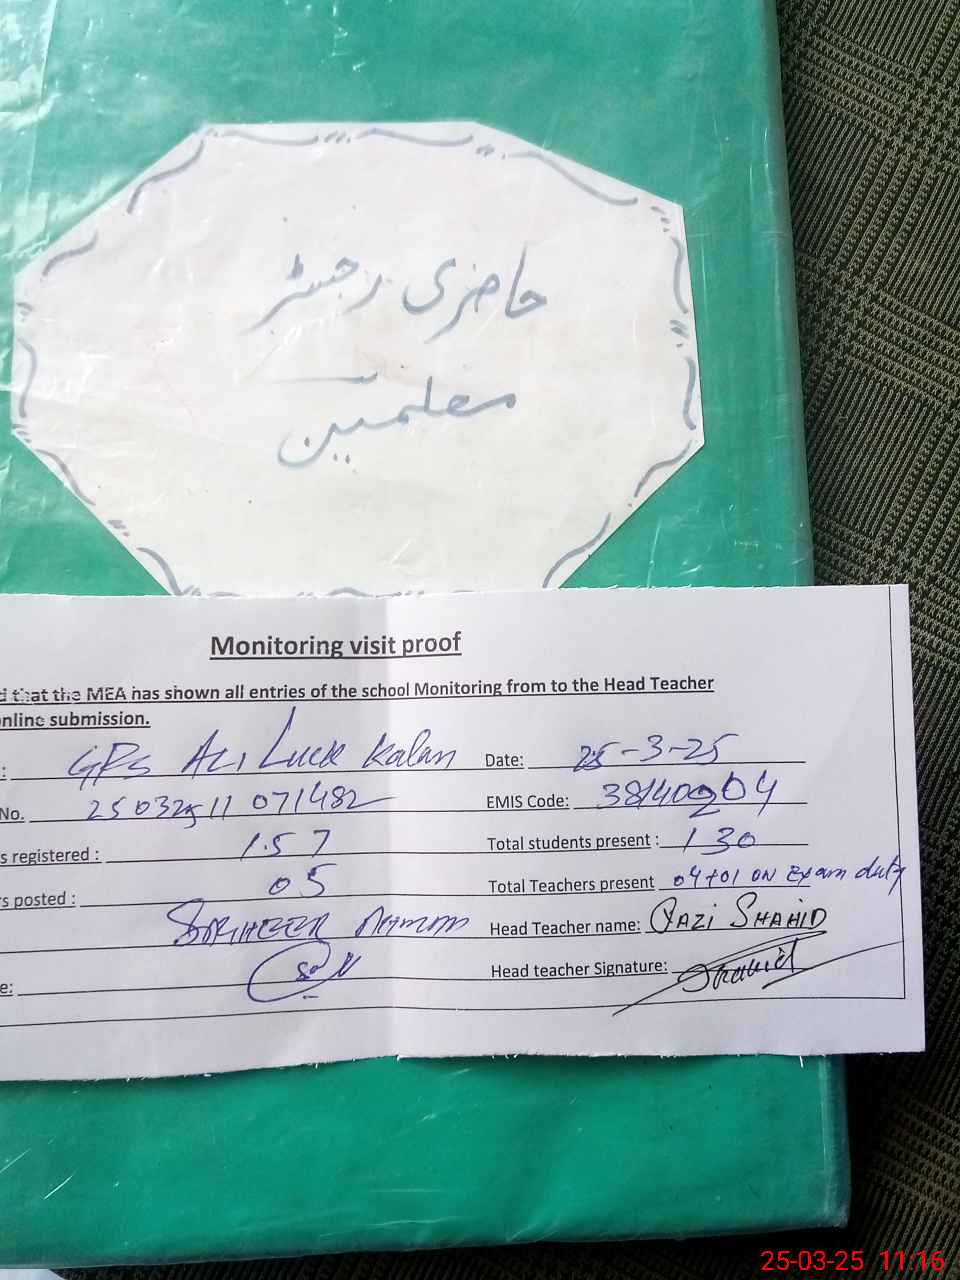 حاضری رجسٹر
معلمین
Monitoring visit proof
d that the MEA has shown all entries of the school Monitoring from to the Head Teacher
online submission.
: GPS ALI Luck Kalan Date: 25-3-25
No. 25032511071482 EMIS Code:
s registered : 157 Total students present : 130
rs posted : 05 Total Teachers present 04+01 ON Exam duty
Head Teacher name: QAZI SHAHID
e: Head teacher Signature: Shahid
25-03-25 11:16